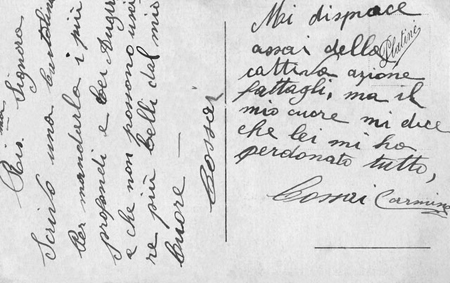 Pia. Signora
Scrivo una cartolina
Per mandarle i più
profondi e bei Auguri
e che non possono usci
re più belli dal mio
Cuore —
Cossai
Mi dispiace
assai della
cattiva azione
fattagli, ma il
mio cuore mi dice
che lei mi ha
perdonato tutto,
Cossai Carmine